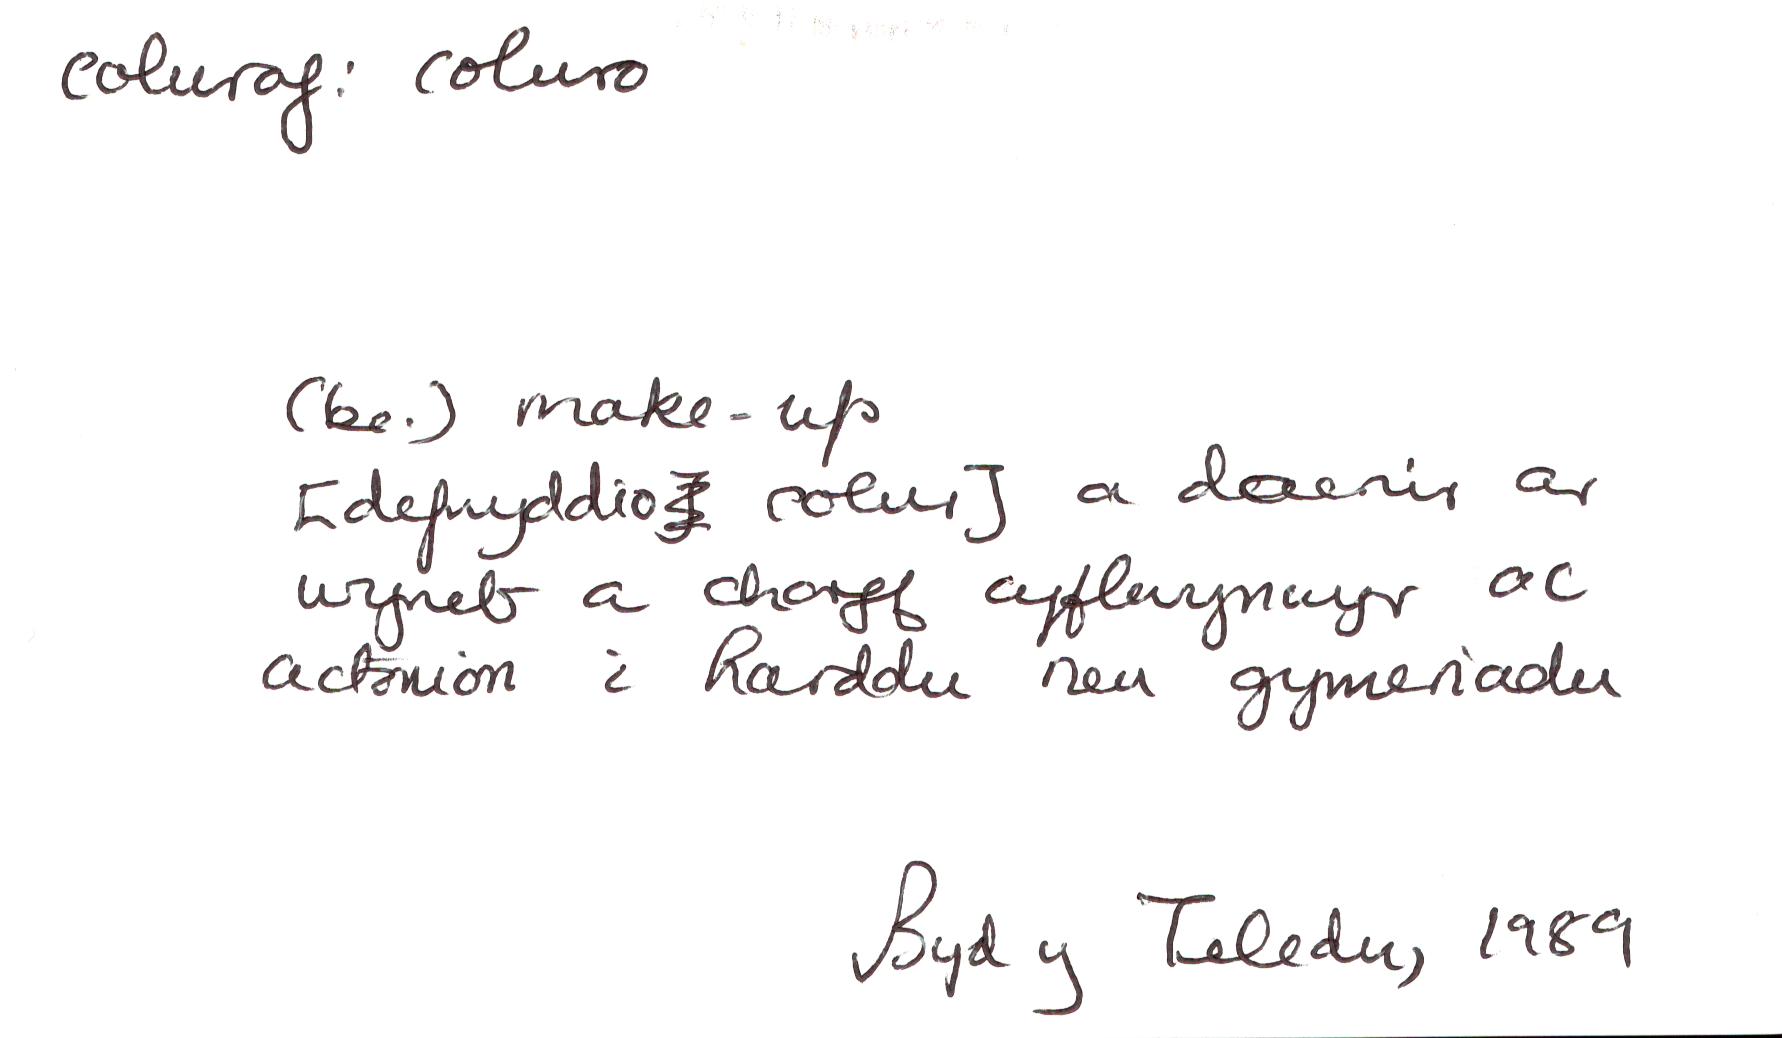 coluraf: coluro
(be.) make-up
[defnyddio colur] a daenir ar
wyneb a chorff cyflwynwyr ac
actorion i harddu neu gymeriadu
Byd y Teledu, 1989